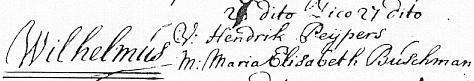 27 dito
Wilhelmus
V: Hendrik Peypers
M: Maria Elisabeth Buschman